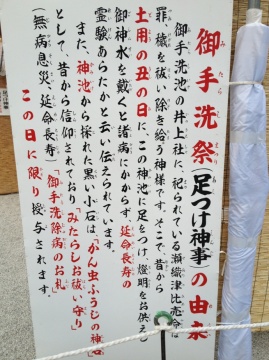 御手洗祭(足つけ神事)の由来
御手洗池の井上社に祀られている瀬織津比売命は
罪穢を祓い除き給う神様です。そこで昔から
土用の丑の日に、この神池に足をつけ、燈明をお供えし
御神水を戴くと諸病にかからず、延命長寿の
霊験あらたかと云い伝えられています。
また、神池から採れた黒い小石は、「かん虫ふうじの神石」
として、昔から信仰されており「みたらしお祓い守り」
(無病息災、延命長寿)「御手洗除病のお札」
この日に限り授与されます。